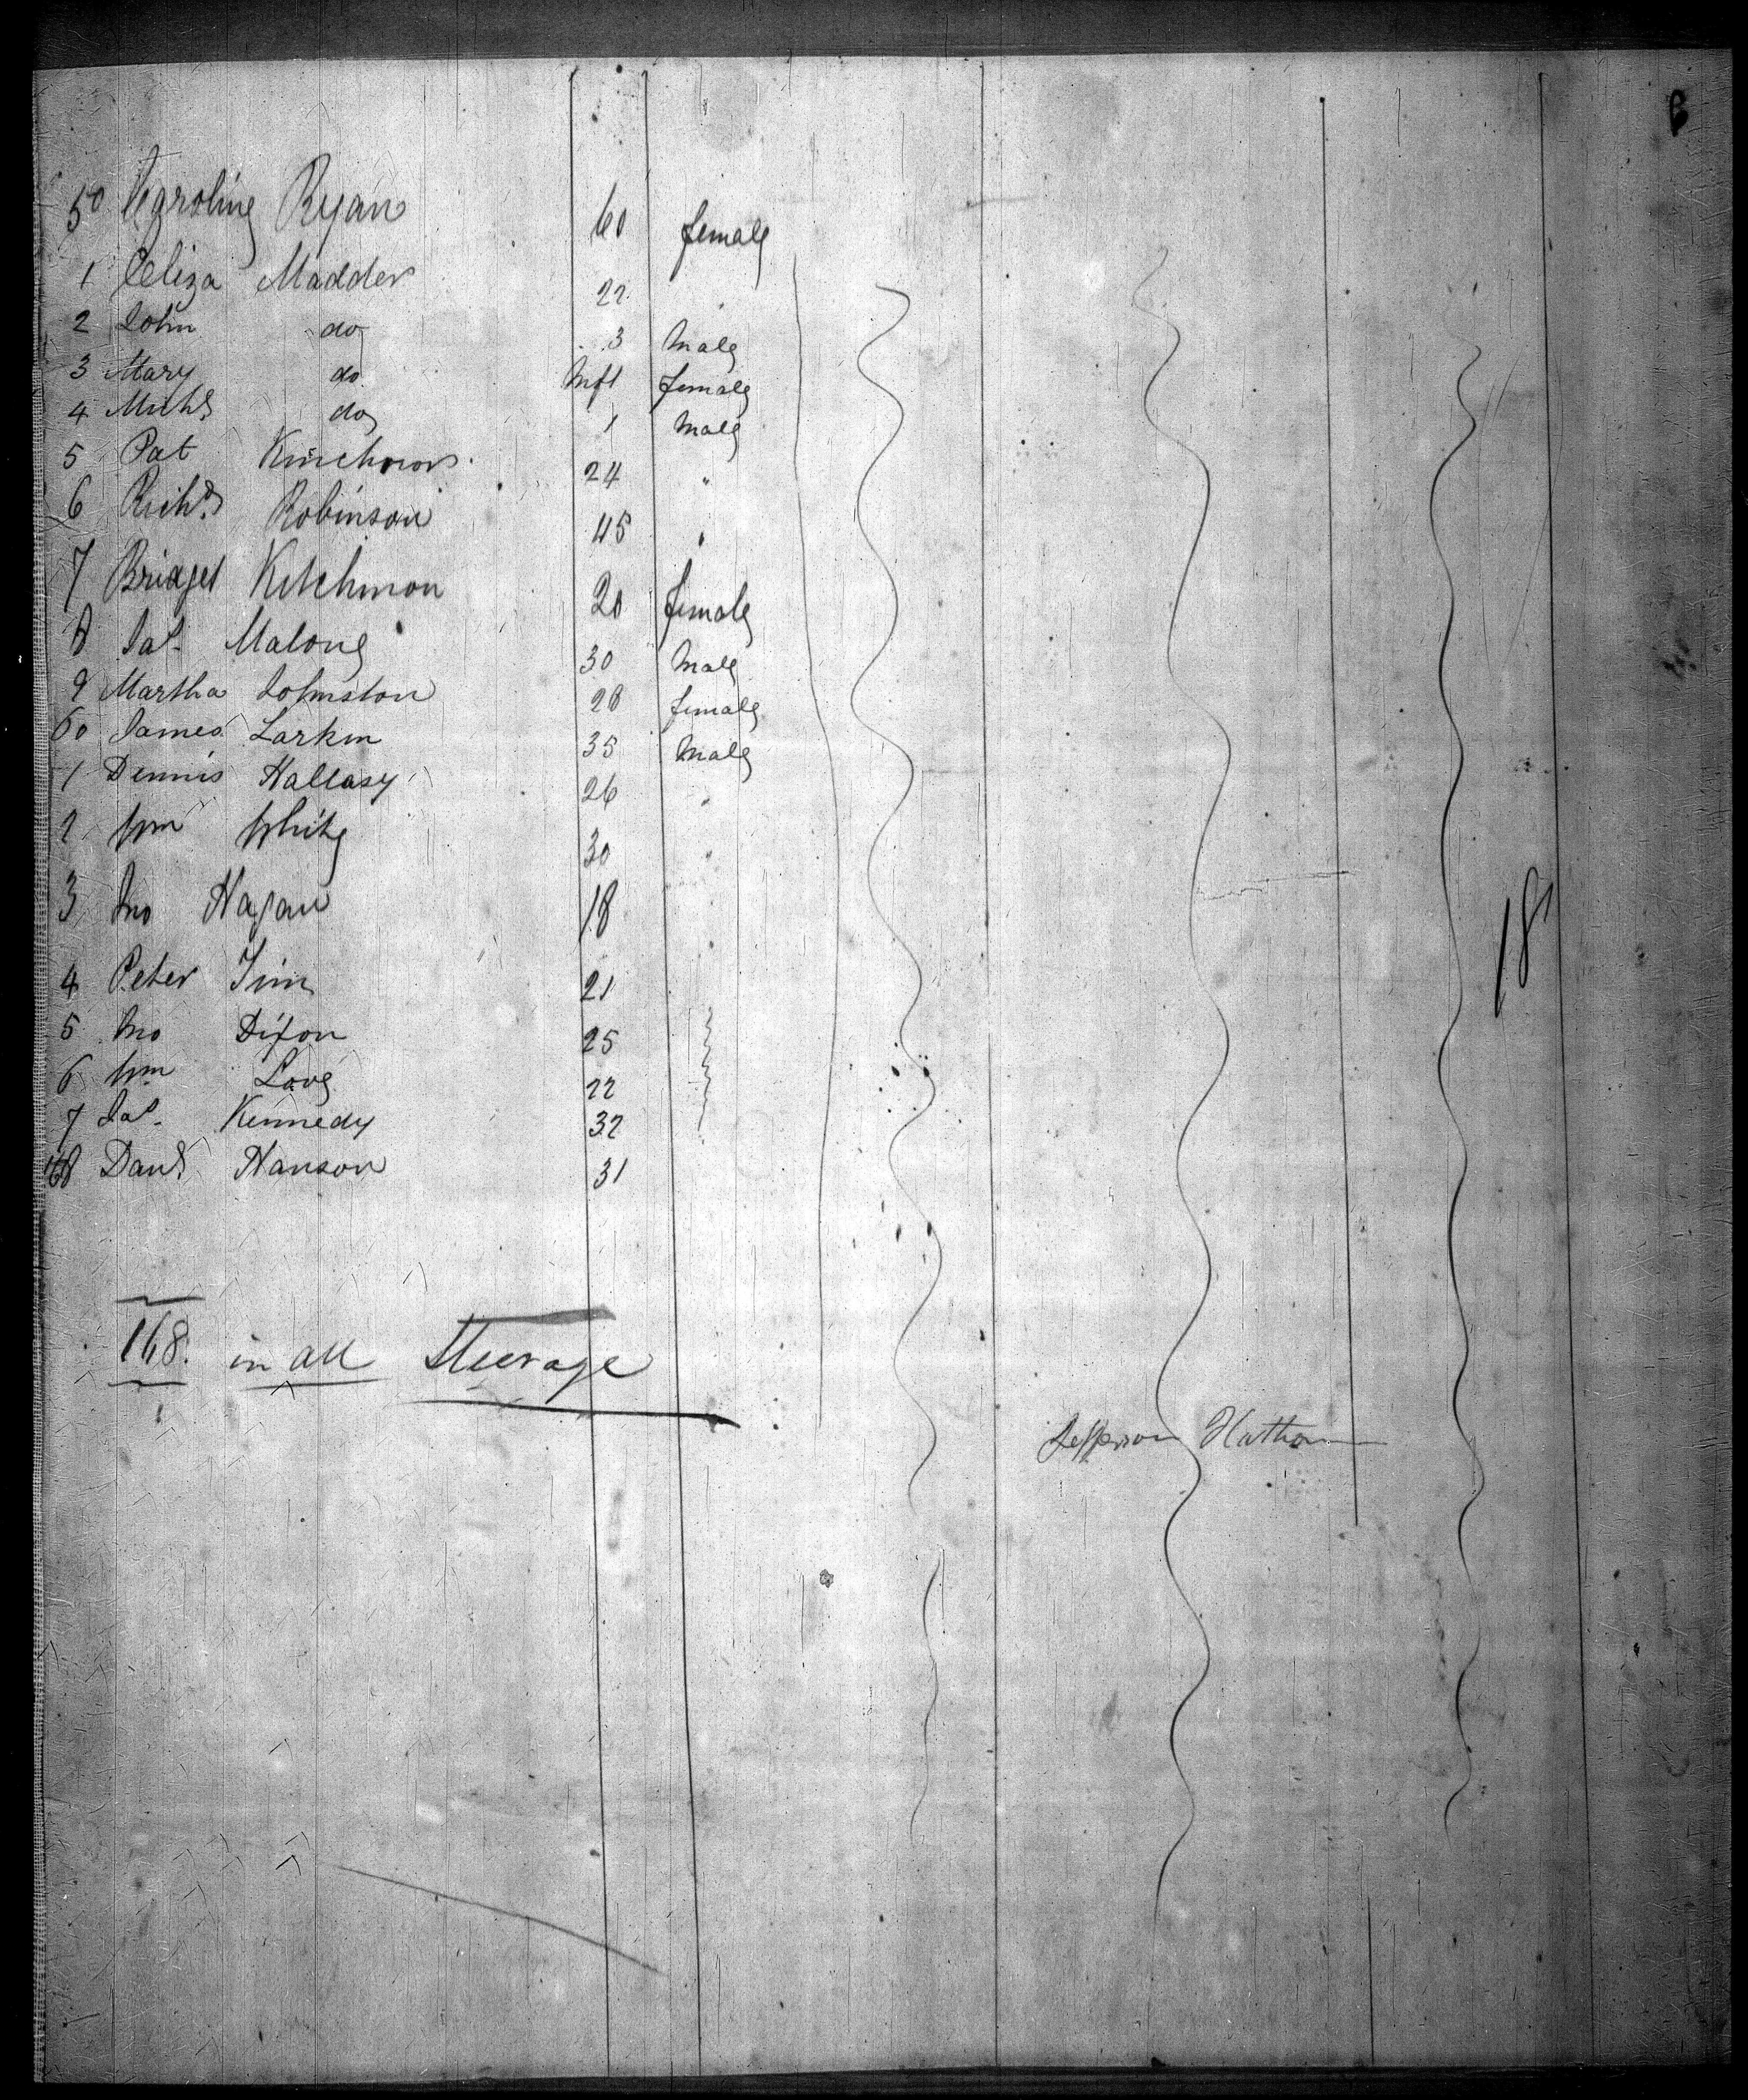 50 Caroline Ryan 60 female
1 Eeliza Madder 22 "
2 John do 3 Male
3 Mary do Inft female
4 Michl do 1 Male
5 Pat 24 "
6 Richd Robinson 45 "
7 Bridget Kitchmon 20 female
8 Jas. Malone 30 Male
9 Martha Johnston 28 female
60 James Larkin 35 Male
1 Dennis Hallasy 26 "
2 Wm White 30 "
3 Jno Hagan 18
4 Peter 21
5 Jno Dixon 25
6 Wm Love 22
7 Jas. Kennedy 32
168 Danl Hanson 31
181
168. in all Steerage
Jefferson